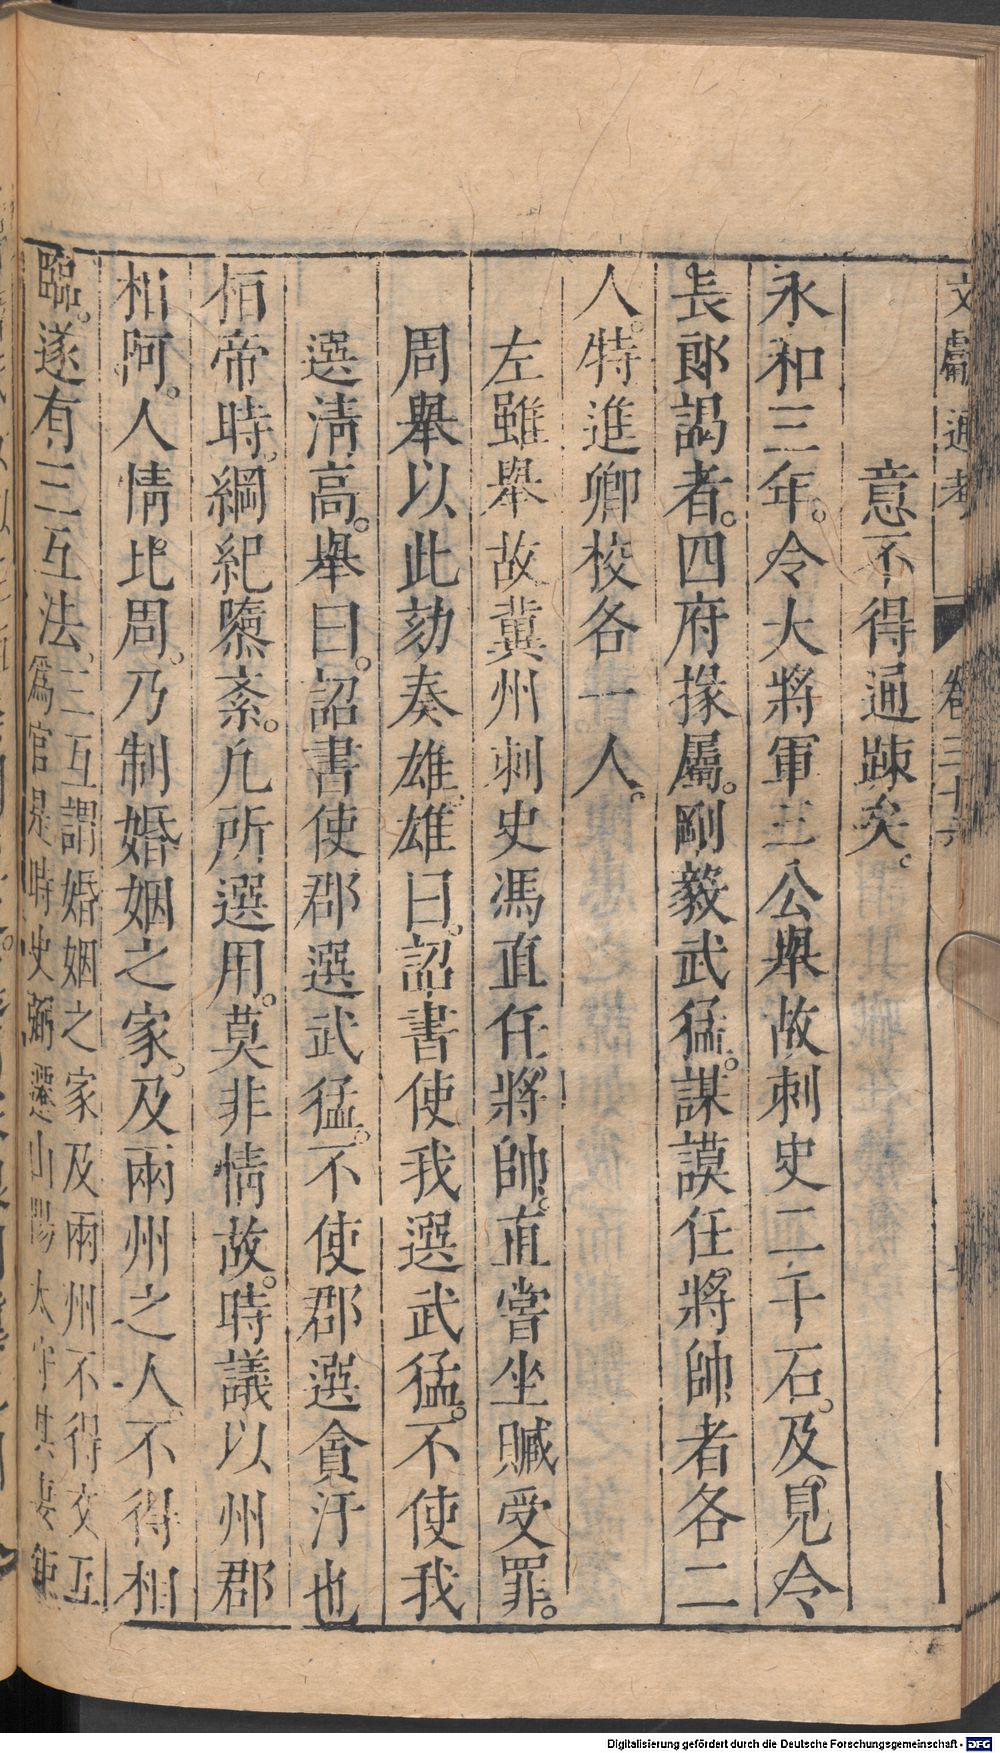 文獻通考　卷三十六
意不得通踈矣。
永和三年。令大將軍三公舉故刺史二千石。及見令
長郎謁者。四府掾屬。剛毅武猛。謀謨任將帥者各二
人。特進卿校各一人。
左雖舉故冀州刺史馮直任將帥。直嘗坐贓受罪。
周舉以此劾奏雄。雄曰。詔書使我選武猛。不使我
選淸高。舉曰。詔書使郡選武猛。不使郡選貪汙也
栢帝時。綱紀隳紊。凡所選用。莫非情故。時議以州郡
相阿。人情比周。乃制婚姻之家。及兩州之人。不得相
臨。遂有三互法。三互謂婚姻之家及兩州不得交互
爲官是時史弼遷山陽太守其妻鉅
Digitalisierung gefördert durch die Deutsche Forschungsgemeinschaft - DFG